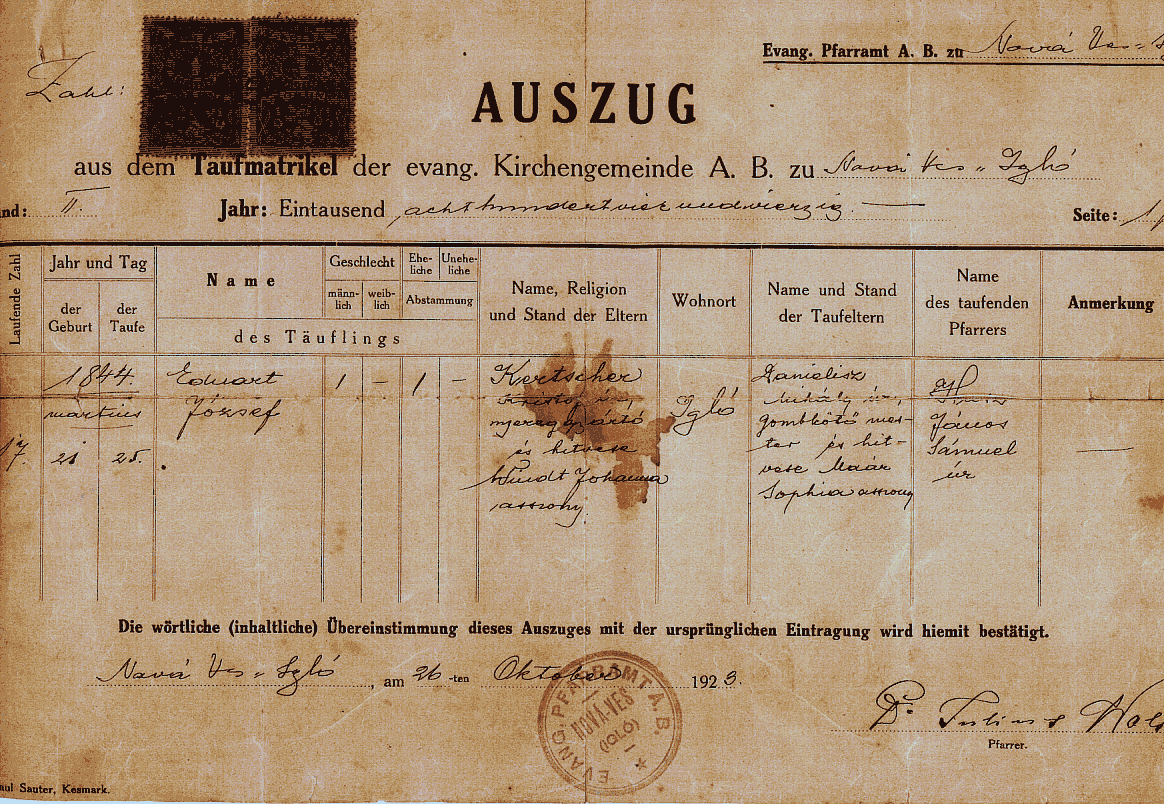 Zahl:
Evang. Pfarramt A. B. zu Nová Ves-
AUSZUG
aus dem Taufmatrikel der evang. Kirchengemeinde A. B. zu Nová Ves - Igló
nd: II. Jahr: Eintausend achthundertvierundvierzig. — Seite:
Laufende Zahl
Jahr und Tag
der Geburt
der Taufe
Name
des Täuflings
Geschlecht
männ-
lich
weib-
lich
Ehe-
liche
Unehe-
liche
Abstammung
Name, Religion
und Stand der Eltern
Wohnort
Name und Stand
der Taufeltern
Name
des taufenden
Pfarrers
Anmerkung
17.
1844.
martius
21 25.
Eduart
József
1 – 1 –
Kertscher
és hitvese
Windt Johanna
asszony
Igló
Danielisz
Mihály úr,
gombkötő mes-
ter és hit-
vese Maár
Sophia asszony
János
Sámuel
úr
—
Die wörtliche (inhaltliche) Übereinstimmung dieses Auszuges mit der ursprünglichen Eintragung wird hiemit bestätigt.
Nová Ves - Igló, am 26-ten Oktober 1923.
EVANG. PFARRAMT A. B.
NOVÁ-VES
(IGLÓ)
Dr. Julius
Pfarrer.
aul Sauter, Kesmark.